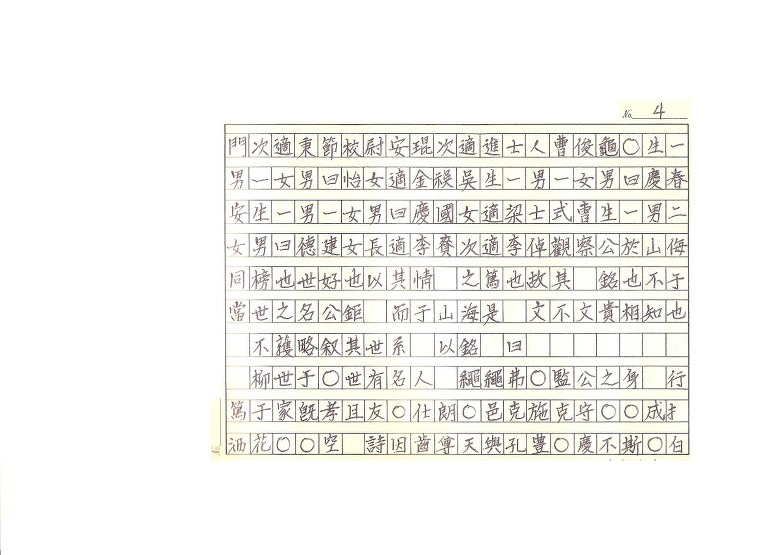 No 4
門次適秉節校尉安琨次適進士人曹俊龜○生一
男一女男曰怡女適金禩吳生一男一女男曰慶春
安生一男一女男曰慶國女適梁士式曹生一男二
女男曰德建女長適李賚次適李倬觀察公於山海
同榜也世好也以其情 之篤也故其 銘也不于
當世之名公鉅 而于山海是 文不文貴相知也
不獲略叙其世系 以銘 曰
柳世于○世有名人 繩繩弗○監公之身 行
篤于家旣孝且友○仕朗○邑克施克守○○成
花○○空 詩因齒傳天與孔豊○慶不斯○白